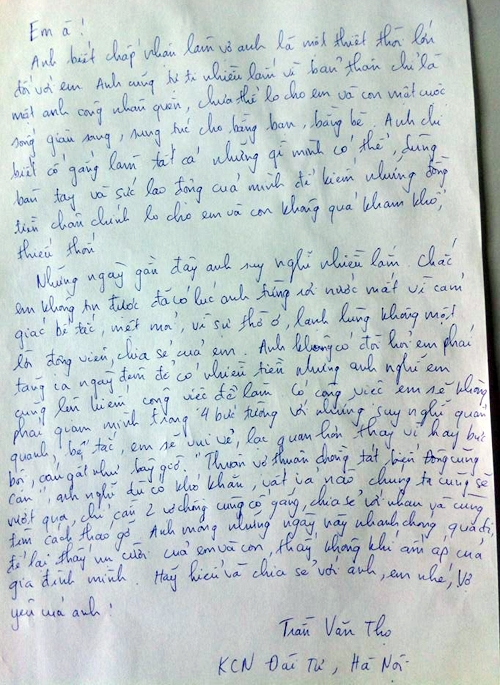 Em ạ!
Anh biết chấp nhận làm vợ anh là một thiệt thòi lớn
đối với em. Anh cũng tự ti nhiều lắm vì bản thân chỉ là
một anh công nhân quèn, chưa thể lo cho em và con một cuộc
sống giàu sang, sung túc cho bằng bạn, bằng bè. Anh chỉ
biết cố gắng làm tất cả những gì mình có thể, dùng
bàn tay và sức lao động của mình để kiếm những đồng
tiền chân chính lo cho em và con không quá kham khổ,
thiếu thốn.
Những ngày gần đây anh suy nghĩ nhiều lắm. Chắc
em không tin được đã có lúc anh từng rơi nước mắt vì cảm
giác bế tắc, mệt mỏi, vì sự thờ ơ, lạnh lùng không một
lời động viên, chia sẻ của em. Anh không có đòi hỏi em phải
tăng ca ngày đêm để có nhiều tiền nhưng anh nghĩ em
cũng lên kiếm công việc để làm. Có công việc em sẽ không
phải giam mình trong 4 bức tường với những suy nghĩ quẩn
quanh, bế tắc, em sẽ vui vẻ, lạc quan hơn thay vì hay bực
bội, cau gắt như bây giờ. "Thuận vợ thuận chồng tát biển Đông cũng
cạn", anh nghĩ dù có khó khăn, vất vả nào chúng ta cũng sẽ
vượt qua, chỉ cần 2 vợ chồng cùng cố gắng, chia sẻ với nhau và cùng
tìm cách tháo gỡ. Anh mong những ngày này nhanh chóng qua đi,
để lại thấy nụ cười của em và con, thấy không khí ấm áp của
gia đình mình. Hãy hiểu và chia sẻ với anh, em nhé, Vợ
yêu của anh!
Trần Văn Thọ
KCN Đài Tư, Hà Nội.